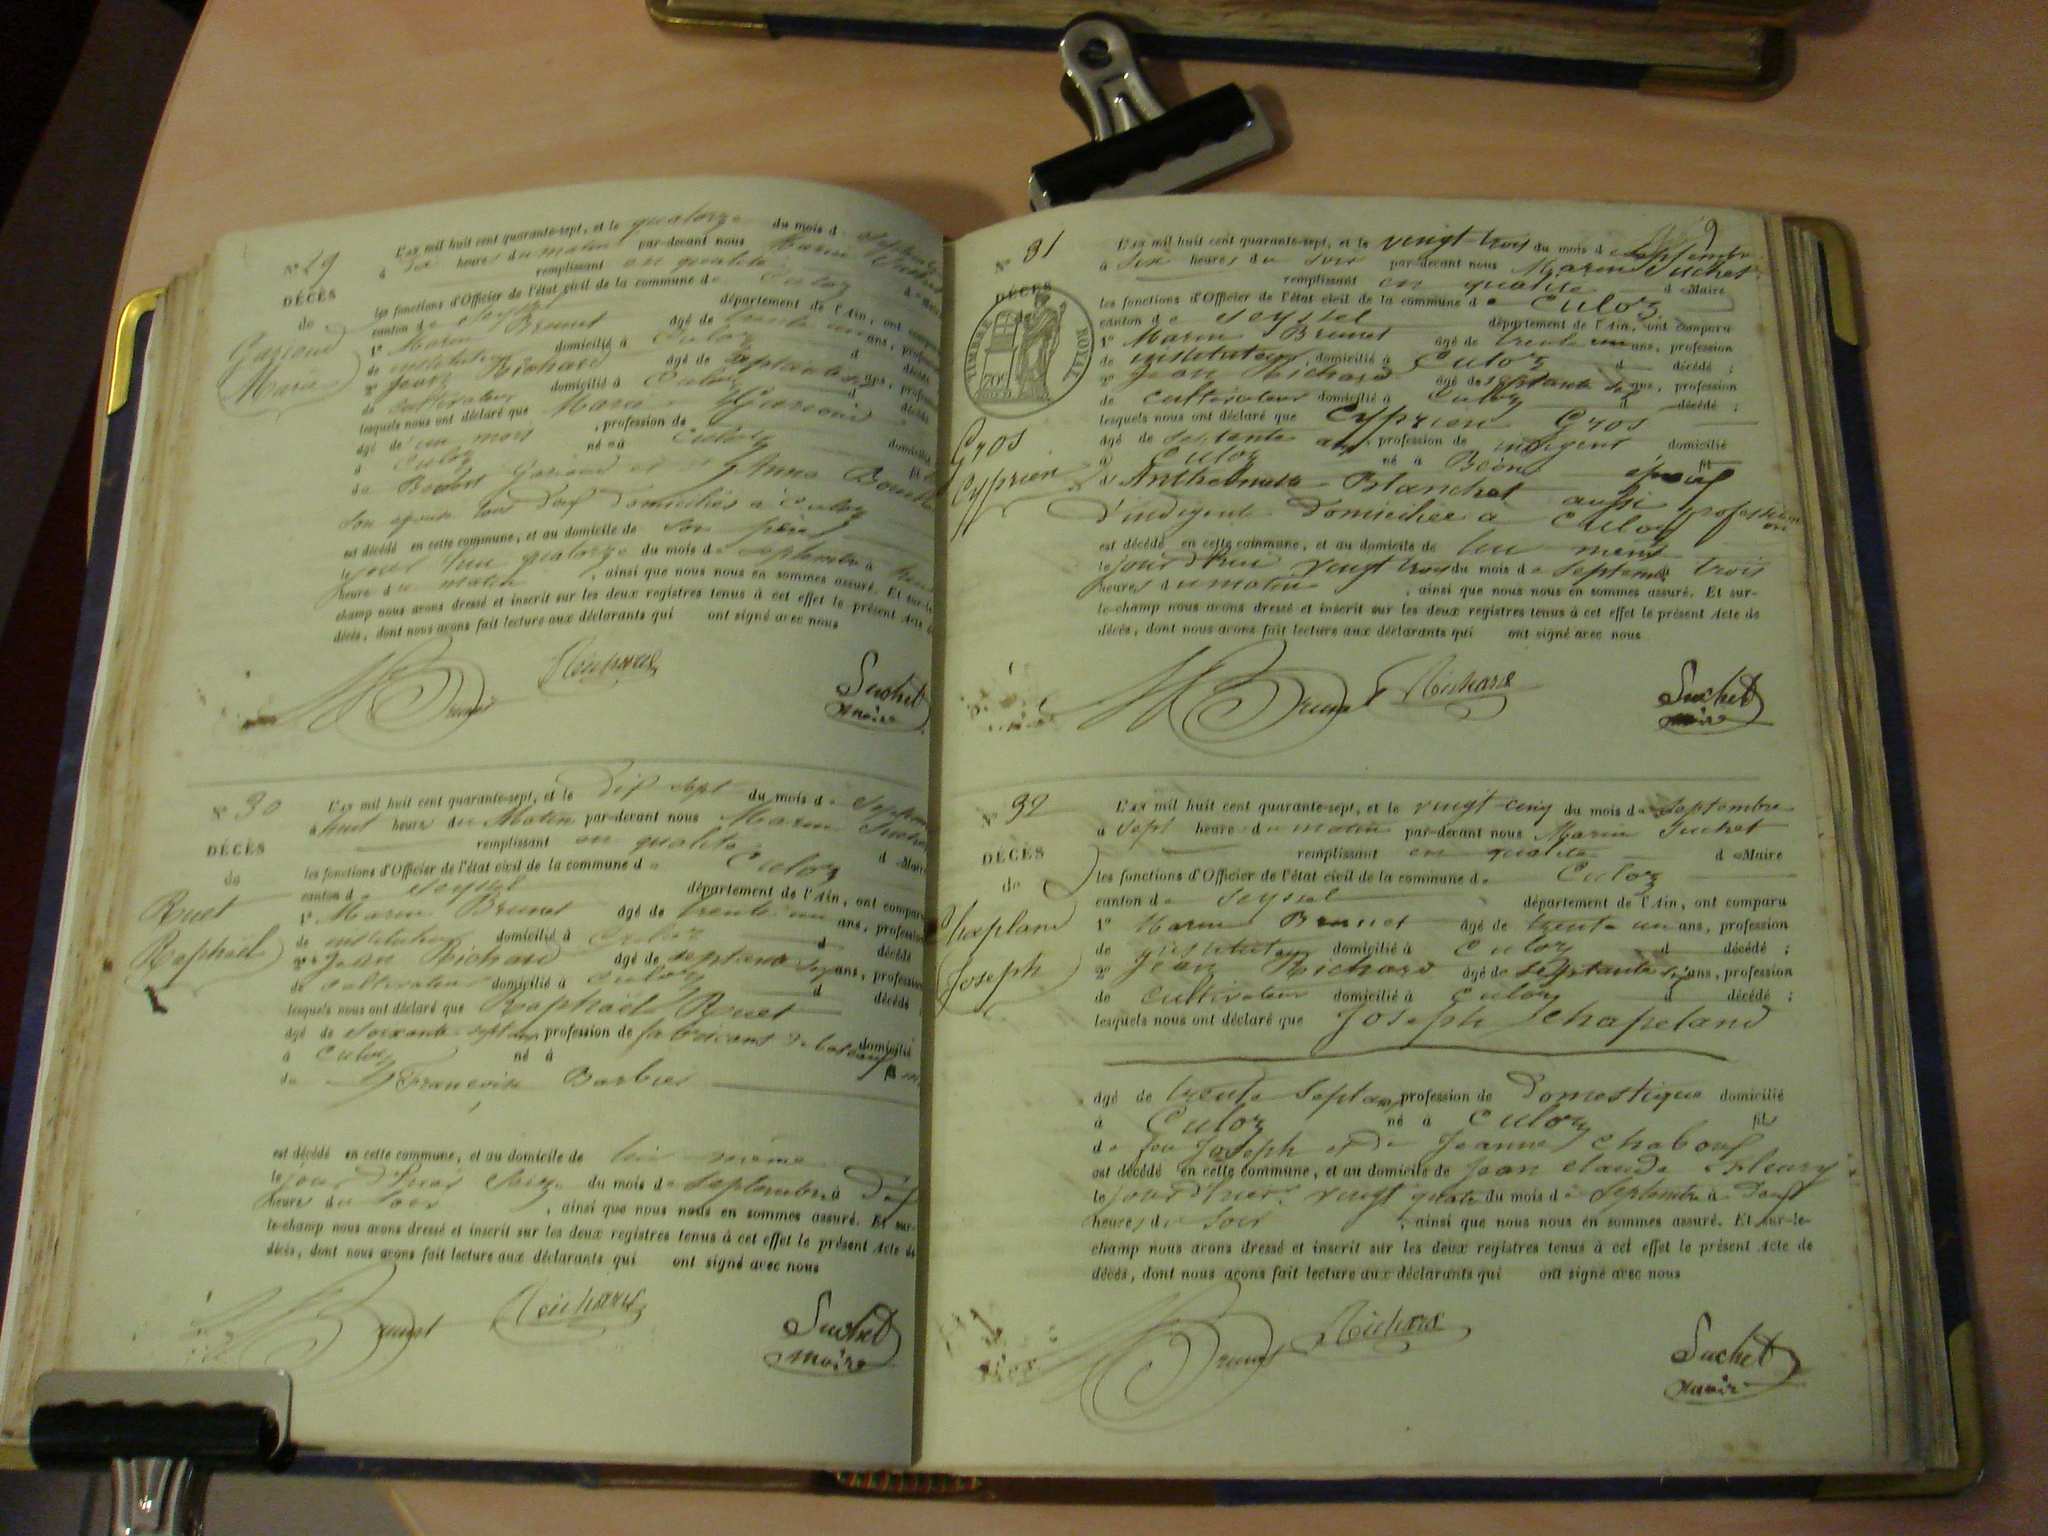 N° 29
DÉCÈS
de
Garioud
Marie
L'an mil huit cent quarante-sept, et le quatorze du mois d
à heures du matin par-devant nous Marin Suchet
remplissant en qualité
les fonctions d'Officier de l'état civil de la commune de Culoz
canton de Seyssel département de l'Ain, ont comparu
1° Marin Brunet âgé de trente un ans, profession
de instituteur domicilié à Culoz d décédé
2° Jean Richard âgé de septante six ans, profession
de cultivateur domicilié à Culoz d décédé
lesquels nous ont déclaré que Marie Garioud
âgé de un mois , profession de domicilié
à Culoz né à Culoz
de Garioud et d Anne
son épouse tous deux domiciliés à Culoz
est décédé en cette commune, et au domicile de son père
le jour d'hui quatorze du mois de septembre à
heure du matin , ainsi que nous nous en sommes assuré. Et sur-le-
champ nous avons dressé et inscrit sur les deux registres tenus à cet effet le présent Acte de
décès, dont nous avons fait lecture aux déclarants qui ont signé avec nous
Brunet Richard Suchet
maire
N° 30
DÉCÈS
de
Ruet
Raphaël
L'an mil huit cent quarante-sept, et le dix sept du mois de Septembre
à huit heure du Matin par-devant nous Marin Suchet
remplissant en qualité d Maire
les fonctions d'Officier de l'état civil de la commune de Culoz
canton de Seyssel département de l'Ain, ont comparu
1° Marin Brunet âgé de trente un ans, profession
de instituteur domicilié à Culoz d décédé
2° Jean Richard âgé de septante six ans, profession
de cultivateur domicilié à Culoz d décédé
lesquels nous ont déclaré que Raphaël Ruet
âgé de soixante sept ans, profession de fabricant de domicilié
à Culoz né à
de Françoise Barbier
est décédé en cette commune, et au domicile de lui même
le jour d'hier seize du mois de Septembre à deux
heure du soir , ainsi que nous nous en sommes assuré. Et sur-
le-champ nous avons dressé et inscrit sur les deux registres tenus à cet effet le présent Acte de
décès, dont nous avons fait lecture aux déclarants qui ont signé avec nous
Brunet Richard Suchet
maire
9
N° 31
DÉCÈS
TIMBRE ROYAL
70c
Gros
Cyprien
L'an mil huit cent quarante-sept, et le vingt trois du mois de Septembre
à six heures du soir par-devant nous Marin Suchet
remplissant en qualité d Maire
les fonctions d'Officier de l'état civil de la commune de Culoz
canton de Seyssel département de l'Ain, ont comparu
1° Marin Brunet âgé de trente un ans, profession
de instituteur, domicilié à Culoz d décédé ;
2° Jean Richard âgé de septante six ans, profession
de cultivateur domicilié à Culoz d décédé ;
lesquels nous ont déclaré que Cyprien Gros
âgé de septante ans, profession de indigent domicilié
à Culoz né à Béon fil
d' Blanchet aussi profession
d'indigent domiciliée à Culoz
est décédé en cette commune, et au domicile de lui même
le jour d'hui vingt trois du mois de Septembre à trois
heures du matin , ainsi que nous nous en sommes assuré. Et sur-
le-champ nous avons dressé et inscrit sur les deux registres tenus à cet effet le présent Acte de
décès, dont nous avons fait lecture aux déclarants qui ont signé avec nous
Brunet Richard Suchet
maire
N° 32
DÉCÈS
de
Chapeland
Joseph
L'an mil huit cent quarante-sept, et le vingt cinq du mois de Septembre
à sept heure du matin par-devant nous Marin Suchet
remplissant en qualité d Maire
les fonctions d'Officier de l'état civil de la commune de Culoz
canton de Seyssel département de l'Ain, ont comparu
1° Marin Brunet âgé de trente un ans, profession
de instituteur domicilié à Culoz d décédé ;
2° Jean Richard âgé de septante six ans, profession
de cultivateur domicilié à Culoz d décédé ;
lesquels nous ont déclaré que Joseph Chapeland
âgé de trente sept ans, profession de Domestique domicilié
à Culoz né à Culoz fil
de feu Joseph et de Jeanne
est décédé en cette commune, et au domicile de Jean Claude Fleury
le jour d'hier vingt quatre du mois de Septembre à deux
heures du soir , ainsi que nous nous en sommes assuré. Et sur-le-
champ nous avons dressé et inscrit sur les deux registres tenus à cet effet le présent Acte de
décès, dont nous avons fait lecture aux déclarants qui ont signé avec nous
Brunet Richard Suchet
maire